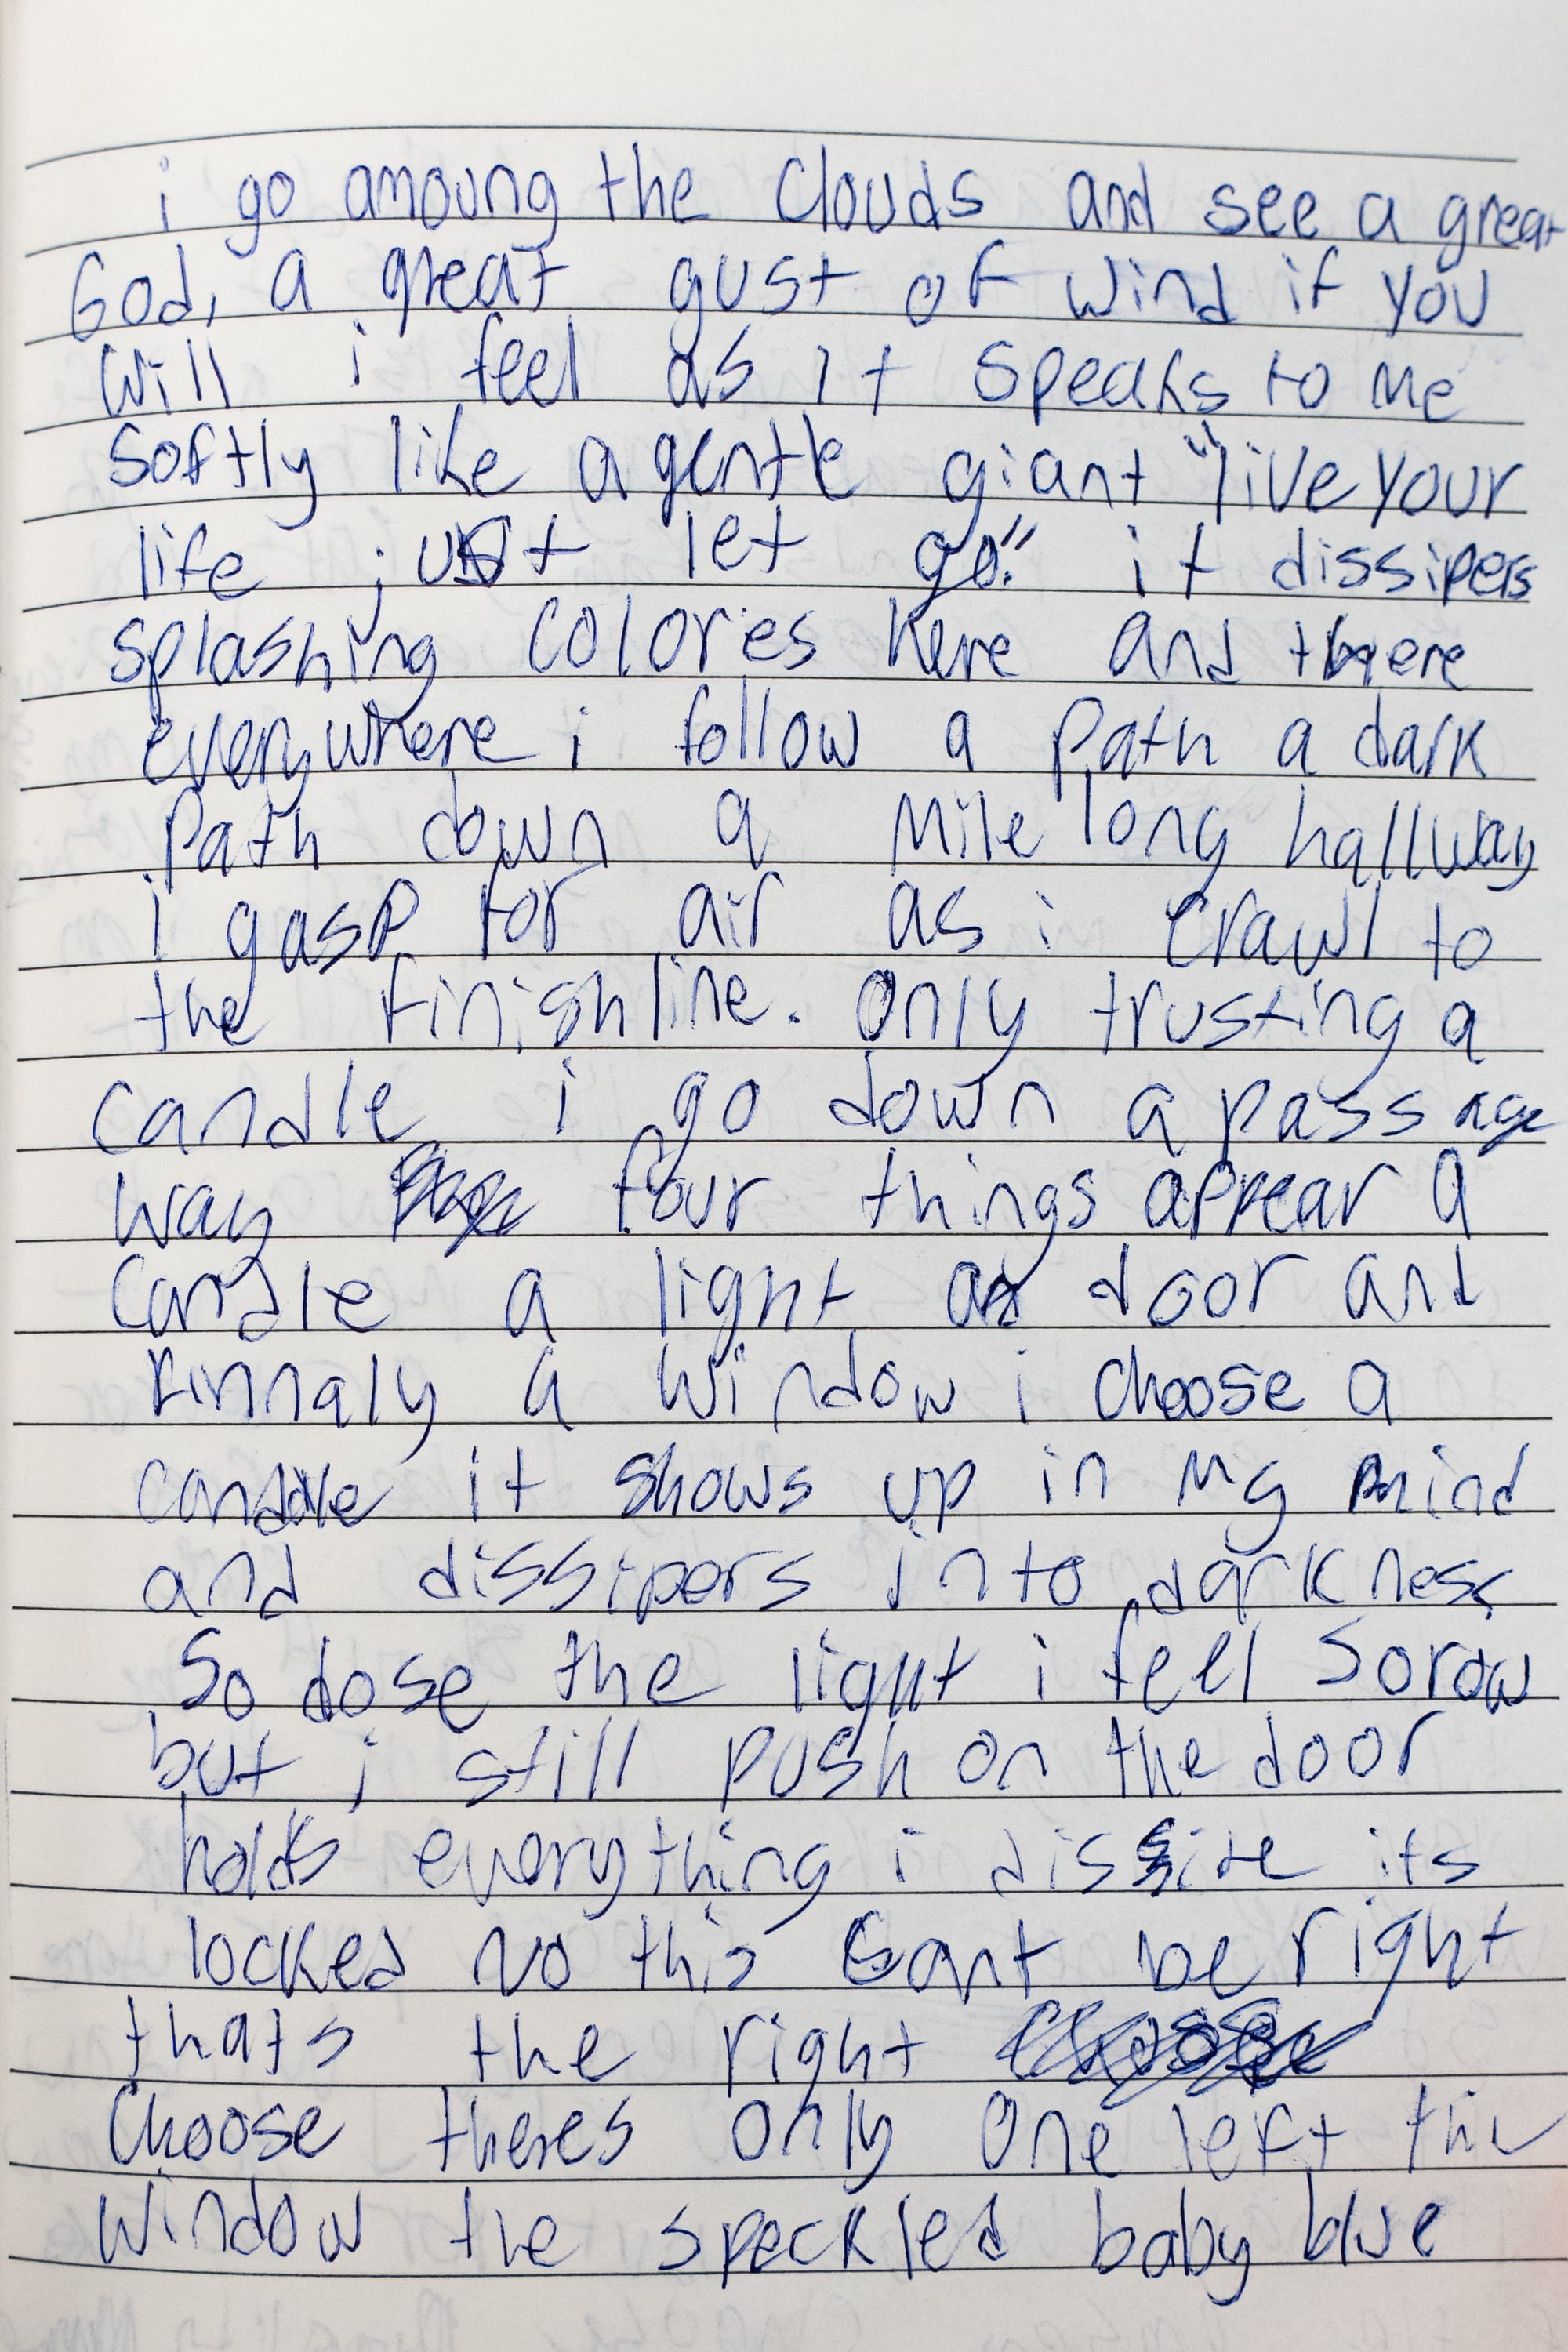 i go amoung the Clouds and see a great
God, a great gust of wind if you
will i feel as it speaks to me
softly like a gentle giant "live your
life just let go." it dissipers
splashing colores here and there
everywhere i follow a path a dark
path down a mile long hallway
i gasp for air as i crawl to
the finish line. Only trusting a
candle i go down a passage
way four things appear a
candle a light a door and
finnaly a window i choose a
candle it shows up in my mind
and dissipers into darkness
So dose the light i feel sorow
but i still push on the door
holds everything i dissire its
locked no this cant be right
thats the right
Choose theres only one left the
window the speckled baby blue